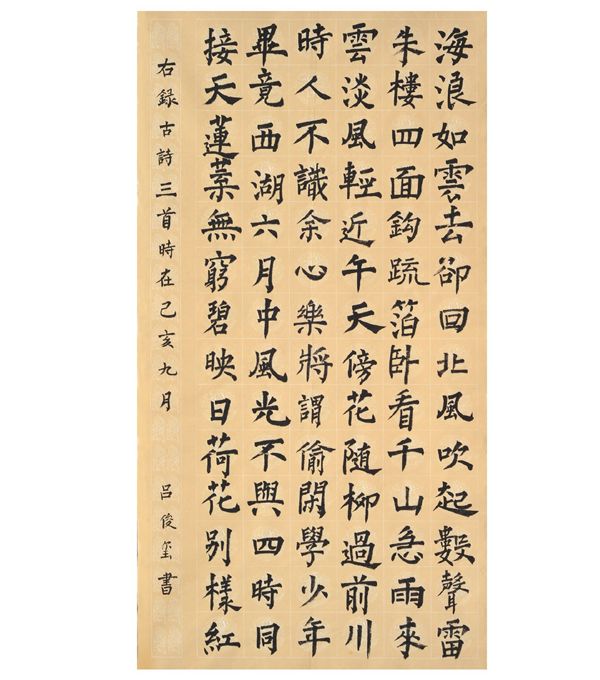 海浪如雲去卻回北風吹起數聲雷
朱樓四面鈎疏箔卧看千山急雨來
雲淡風輕近午天傍花隨柳過前川
時人不識余心樂將謂偷閑學少年
畢竟西湖六月中風光不與四時同
接天蓮葉無窮碧映日荷花別樣紅
右録古詩三首時在己亥九月 呂俊玺書